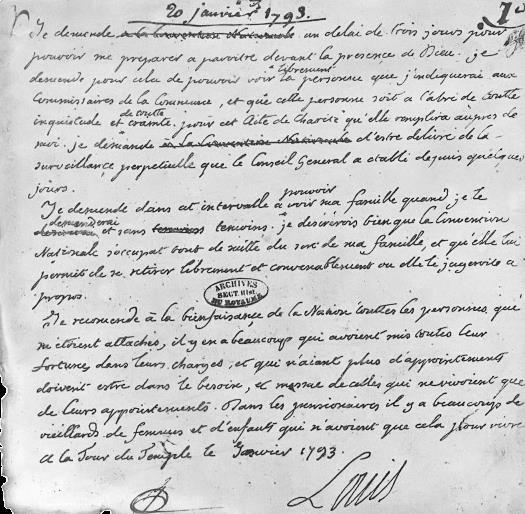 20 janvier 1793.
Je demende a la Convention Nationale un delai de trois jours pour
pouvoir me preparer a paroitre devant la presence de Dieu. je
demende pour cela de pouvoir voir librement la personne que j'indiquerai aux
Commissaires de la Commune, et que cette personne soit a l'abri de toutte
inquietude et de toutte crainte pour cet Acte de Charité qu'elle remplira aupres de
moi. je demande a la Convention Nationale d'estre delivré de la
surveillance perpetuelle que le Conseil General a etabli depuis quelques
jours.
Je demende dans cet intervalle a pouvoir voir ma famille quand je le
demanderai et sans temoins. je desirerois bien que la Convention
Nationale s'occupat tout de suitte du sort de ma famille, et qu'elle lui
permits de se retirer librement et convenablement ou elle le jugeroit a
propos.
ARCHIVES
SECT. HIST.
DU ROYAUME
Je recomende à la bienfaisance de la Nation touttes les personnes qui
m'etoient attachés, il y en a beaucoup qui avoient mis toutes leur
fortune dans leurs charges, et qui n'aiant plus d'appointements
doivent estre dans le besoin, et mesme de celles qui ne vivoient que
de leurs appointements. Dans les pensionaires il y a beaucoup de
vieillards de femmes et d'enfants qui n'avoient que cela pour vivre
a la Tour du Temple le Janvier 1793.
Louis